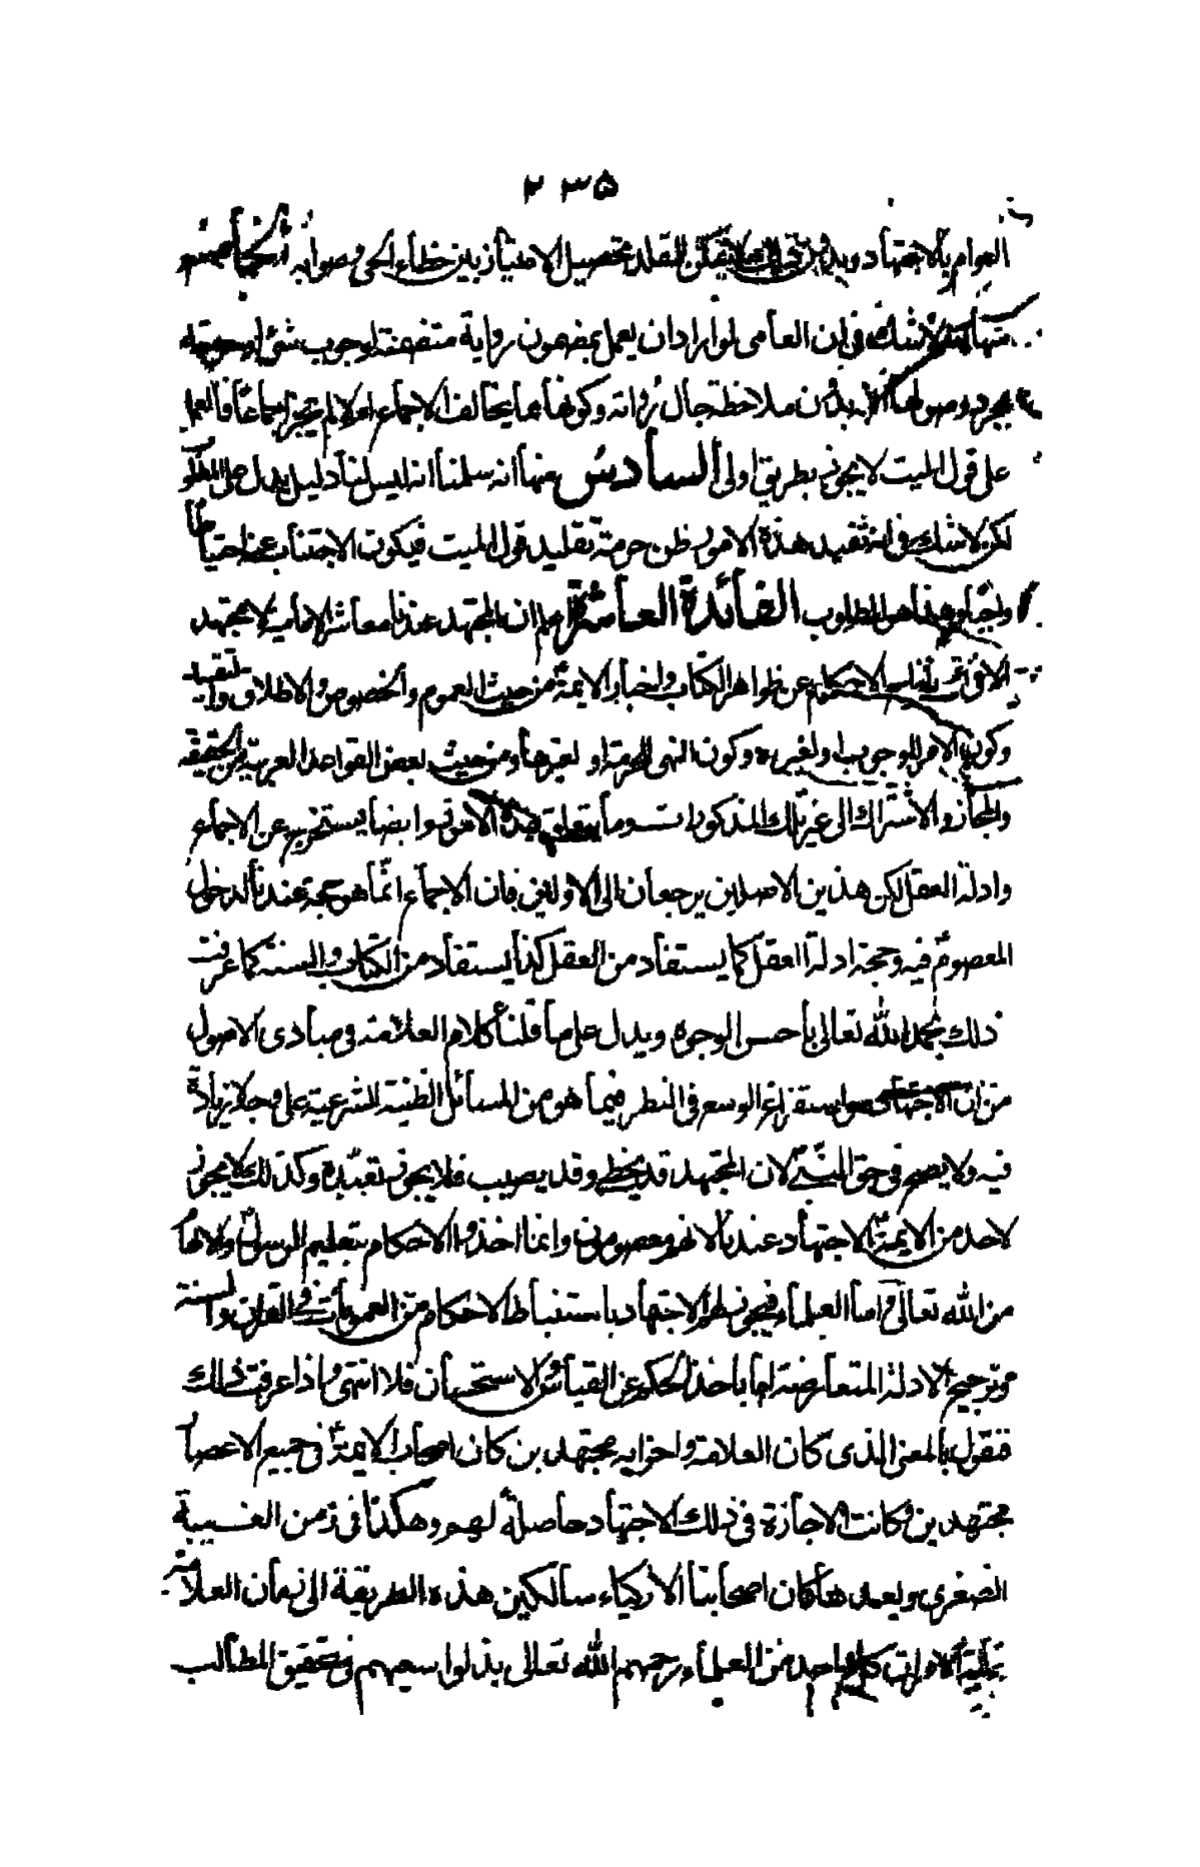 ٢٣٥
العوام بالاجتهاد وبدون ذلك لا يمكن للمقلد تحصيل الامتياز بين خطاء الحى وصوابه
منها انه لا شك فى ان العامى لو اراد ان يعمل بمضمون رواية متضمنة لوجوب شئ او حرمته
بمجرد وصولها لا بد من ملاحظة حال رواته وكونها مما يخالف الاجماع ام لا لم يجز اجماعا فالعمل
على قول الميت لا يجوز بطريق اولى السادس منها انه سلمنا انه ليس لنا دليل يدل على المطلوب
لكن لا شك فى انه تفيد هذه الامور ظن حرمة تقليد قول الميت فيكون الاجتناب عنه احتياطا
واجبا وهذا هو المطلوب الفائدة العاشرة اعلم ان المجتهد عندنا معاشر الامامية لا يجتهد
الا فى اقتباس الاحكام عن ظواهر الكتاب واخبار الايمة من حيث العموم والخصوص والاطلاق والتقييد
وكون الامر للوجوب او لغيره وكون النهى للحرمة او لغيرها ومن حيث بعض القواعد العربية من الحقيقة
والمجاز والاشتراك الى غير تلك المذكورات وما يتعلق بهذه الامور وايضا يستخرج عن الاجماع
وادلة العقل لكن هذين الاصلين يرجعان الى الاولين فان الاجماع انما هو حجة عندنا لدخول
المعصوم فيه وحجة ادلة العقل كما يستفاد من العقل كذا يستفاد من الكتاب والسنة كما عرفت
ذلك بحمد الله تعالى باحسن الوجوه ويدل على ما قلنا كلام العلامة فى مبادى الاصول
من ان الاجتهاد هو استفراغ الوسع فى النظر فيما هو من المسائل الظنية الشرعية على وجه لا زيادة
فيه ولا يصح فى حق النبى لان المجتهد قد يخطى وقد يصيب فلا يجوز تعبده وكذلك لا يجوز
لاحد من الايمة الاجتهاد عندنا لانهم معصومون وانما اخذوا الاحكام بتعليم الرسول والالهام
من الله تعالى واما العلماء فيجوز لهم الاجتهاد باستنباط الاحكام من العمومات فى القران والسنة
وترجيح الادلة المتعارضة اما باخذ الحكم عن القياس والاستحسان فلا انتهى واذا عرفت ذلك
فنقول بالمعنى الذى كان العلامة واحزابه مجتهدين كان اصحاب الايمة فى جميع الاعصار
مجتهدين وكانت الاجازة فى ذلك الاجتهاد حاصلة لهم وهكذا فى زمن الغيبة
الصغرى وبعدها كان اصحابنا الازكياء سالكين هذه الطريقة الى زمان العلامة
الا ان كل واحد من العلماء رحمهم الله تعالى بذلوا سعيهم فى تحقيق المطالب